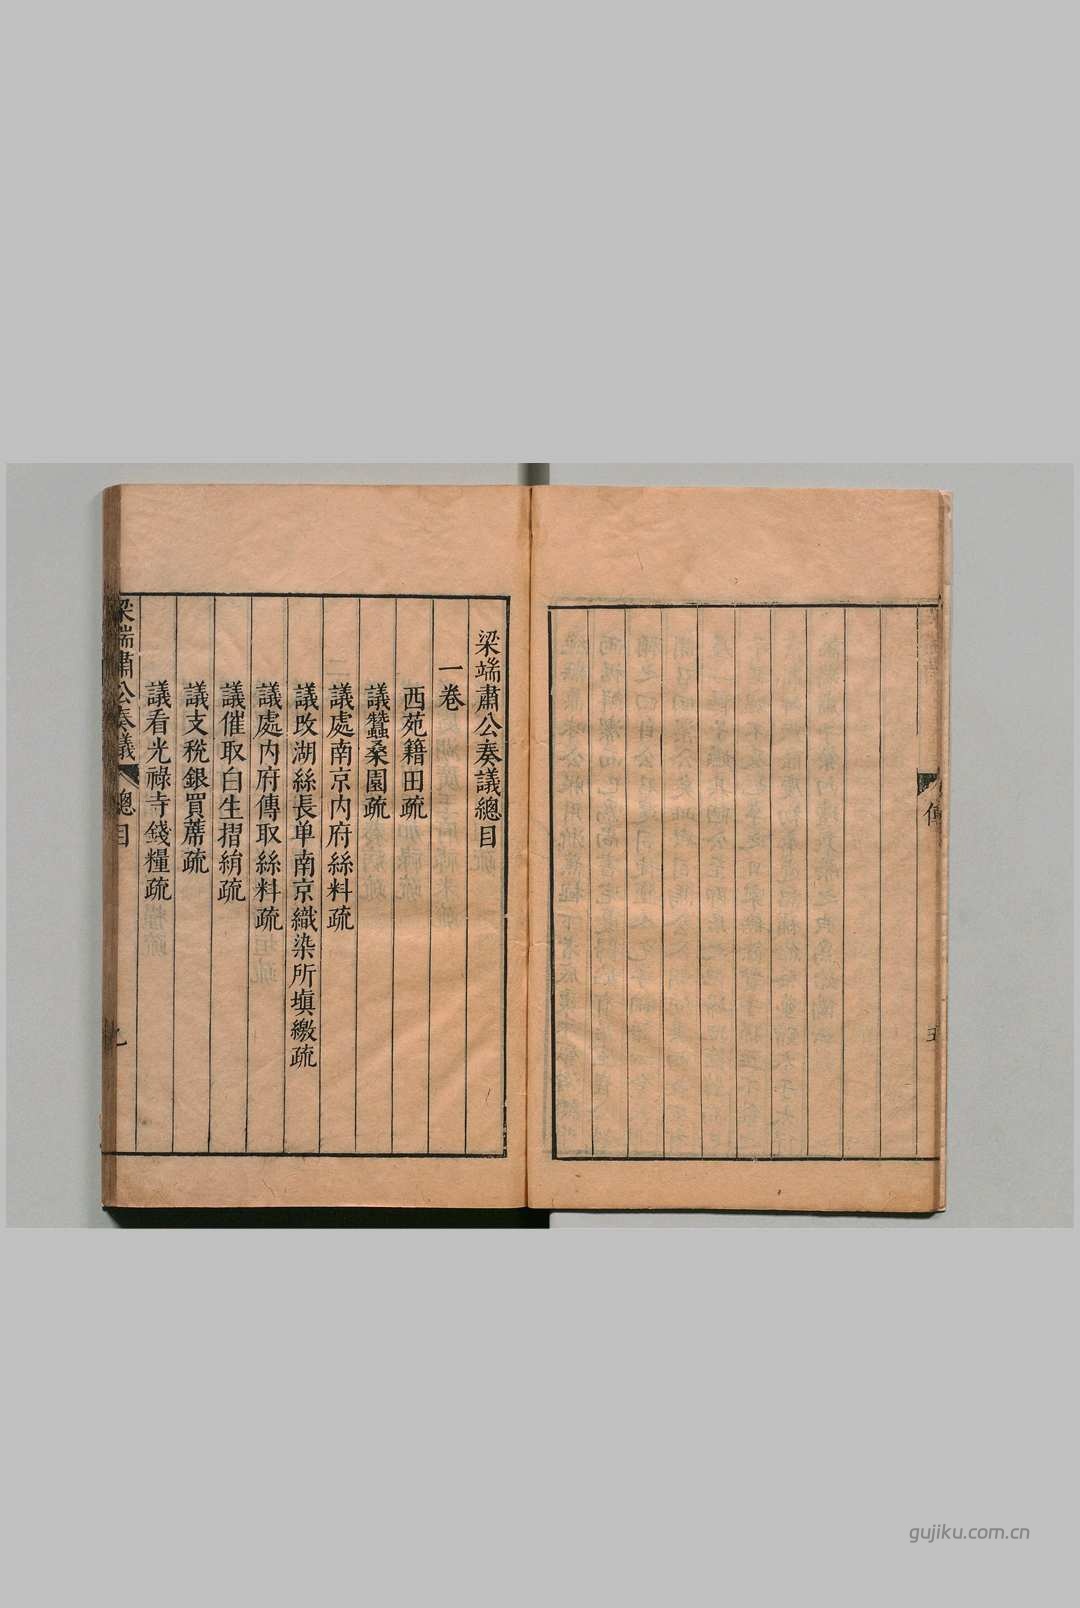 梁端肅公奏議總目
一卷
西苑籍田疏
議蠶桑園疏
議處南京内府絲料疏
議改湖絲長单南京織染所塡繳疏
議處内府傳取絲料疏
議催取白生摺絹疏
議支稅銀買蓆疏
議看光祿寺錢糧疏
梁端肅公奏議 總目
傳
五
gujiku.com.cn